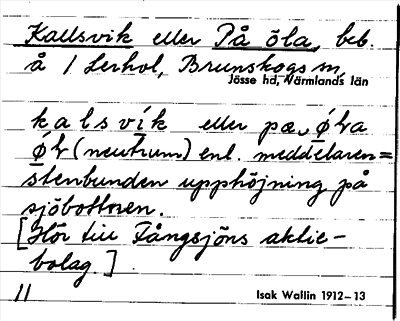 Kallsvik eller På öla, beb.
å 1 Lerhol, Brunskogs sn,
Jösse hd, Värmlands län
kalsvik eller pæ øɽa
øɽ (neutrum) enl. meddelaren =
stenbunden upphöjning på
sjöbottnen.
[Hör till Fångsjöns aktie-
bolag.]
11
Isak Wallin 1912–13